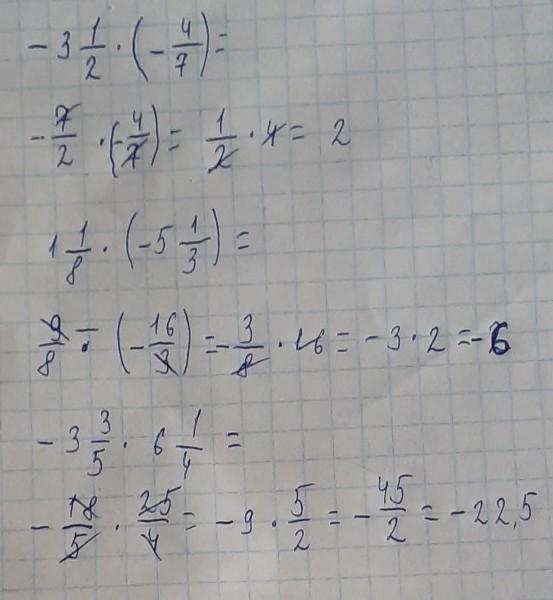 -3 1/2 · (-4/7) =
-7/2 · (-4/7) = 1/2 · 4 = 2
1 1/8 · (-5 1/3) =
9/8 · (-16/3) = -3/8 · 16 = -3 · 2 = -6
-3 3/5 · 6 1/4 =
-18/5 · 25/4 = -9 · 5/2 = -45/2 = -22,5